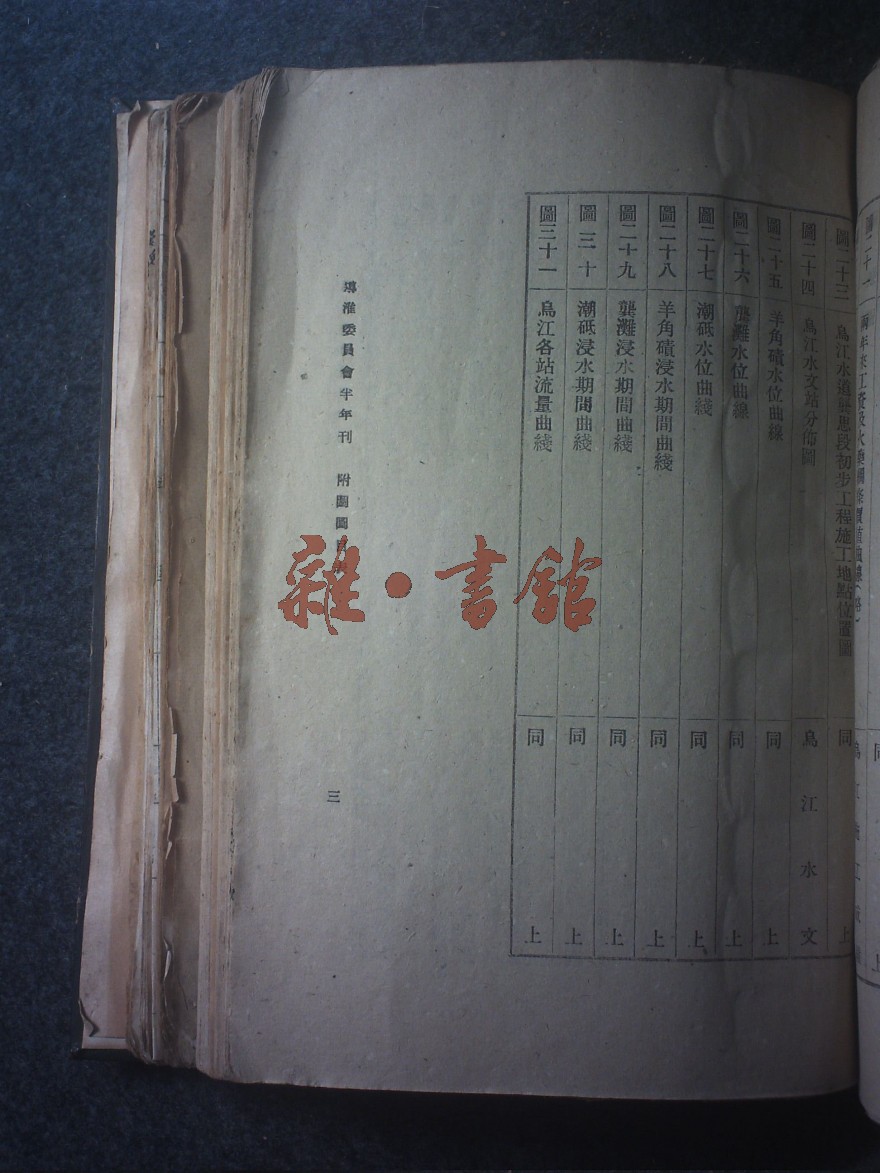 圖二十三 烏江水道龔思段初步工程施工地點位置圖 同上
圖二十四 烏江水文站分佈圖 烏江水文
圖二十五 羊角磧水位曲線 同上
圖二十六 龔灘水位曲線 同上
圖二十七 潮砥水位曲綫 同上
圖二十八 羊角磧浸水期間曲綫 同上
圖二十九 龔灘浸水期間曲綫 同上
圖三十 潮砥浸水期間曲綫 同上
圖三十一 烏江各站流量曲綫 同上
導淮委員會半年刊 附圖
三
雜·書館